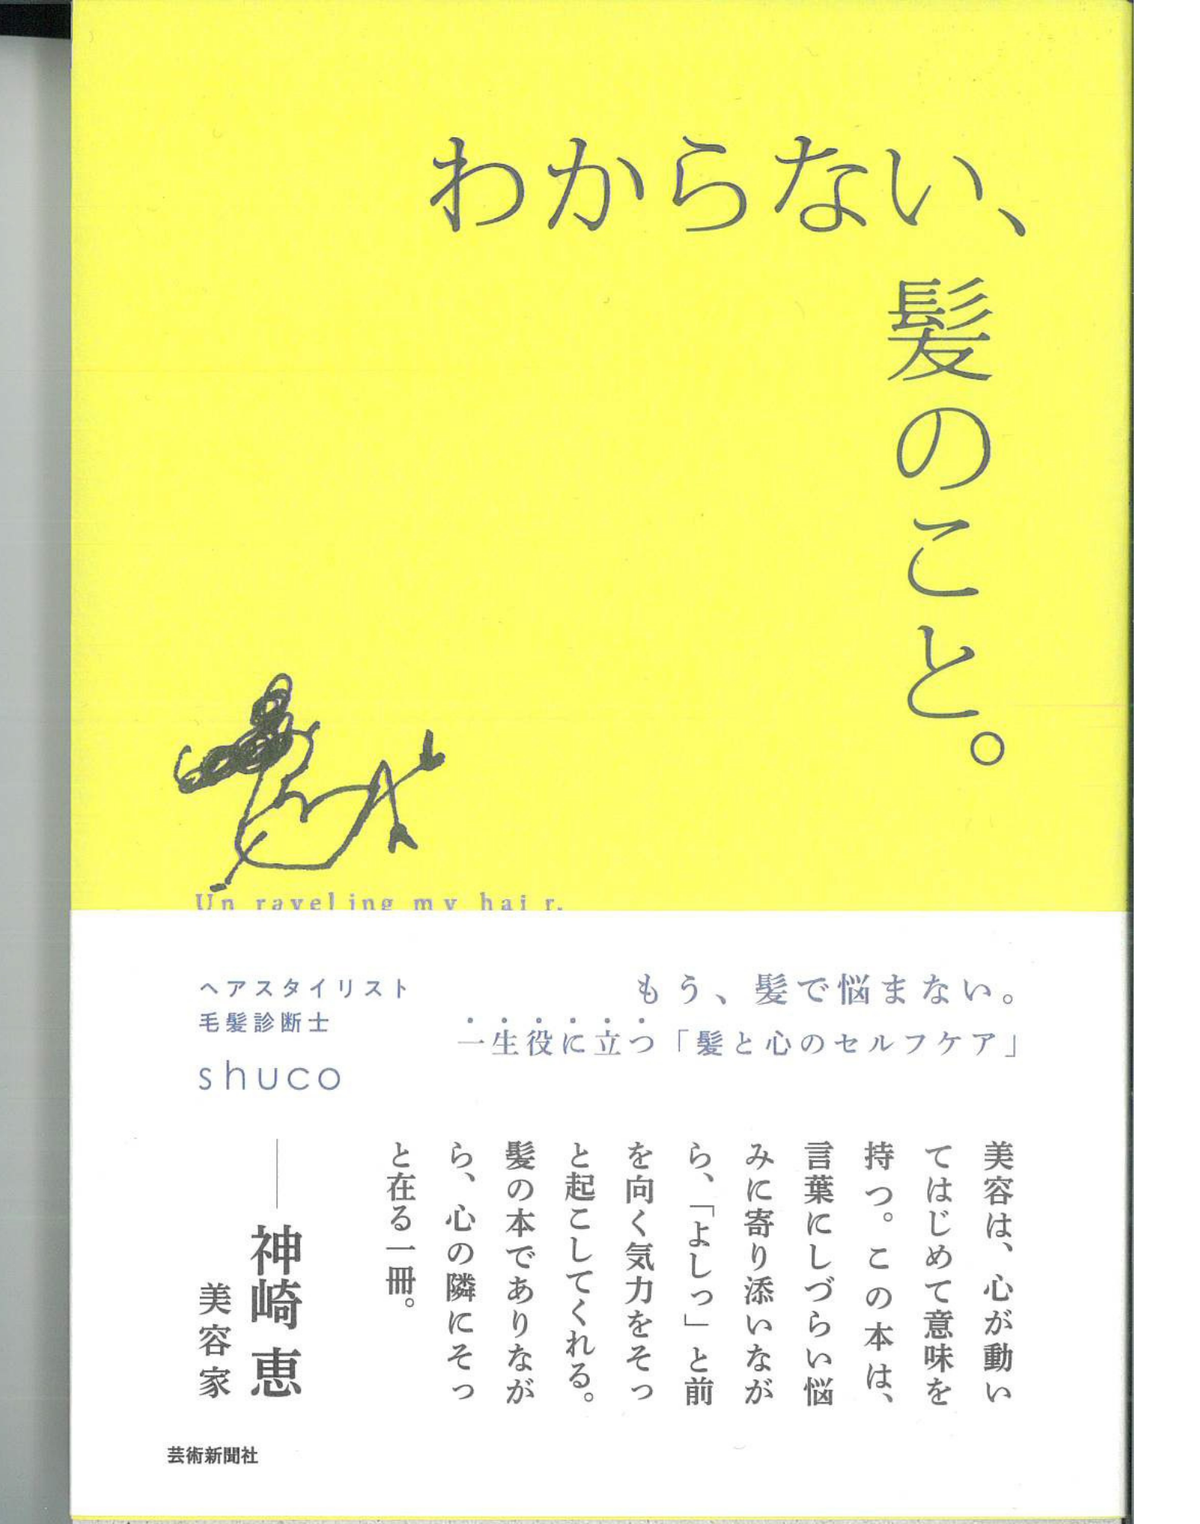 わからない、
髪のこと。
Un raveling my hai r.
もう、髪で悩まない。
一生役に立つ「髪と心のセルフケア」
ヘアスタイリスト
毛髪診断士
shuco
美容は、心が動い
てはじめて意味を
持つ。この本は、
言葉にしづらい悩
みに寄り添いなが
ら、「よしっ」と前
を向く気力をそっ
と起こしてくれる。
髪の本でありなが
ら、心の隣にそっ
と在る一冊。
——神崎 恵
美容家
芸術新聞社